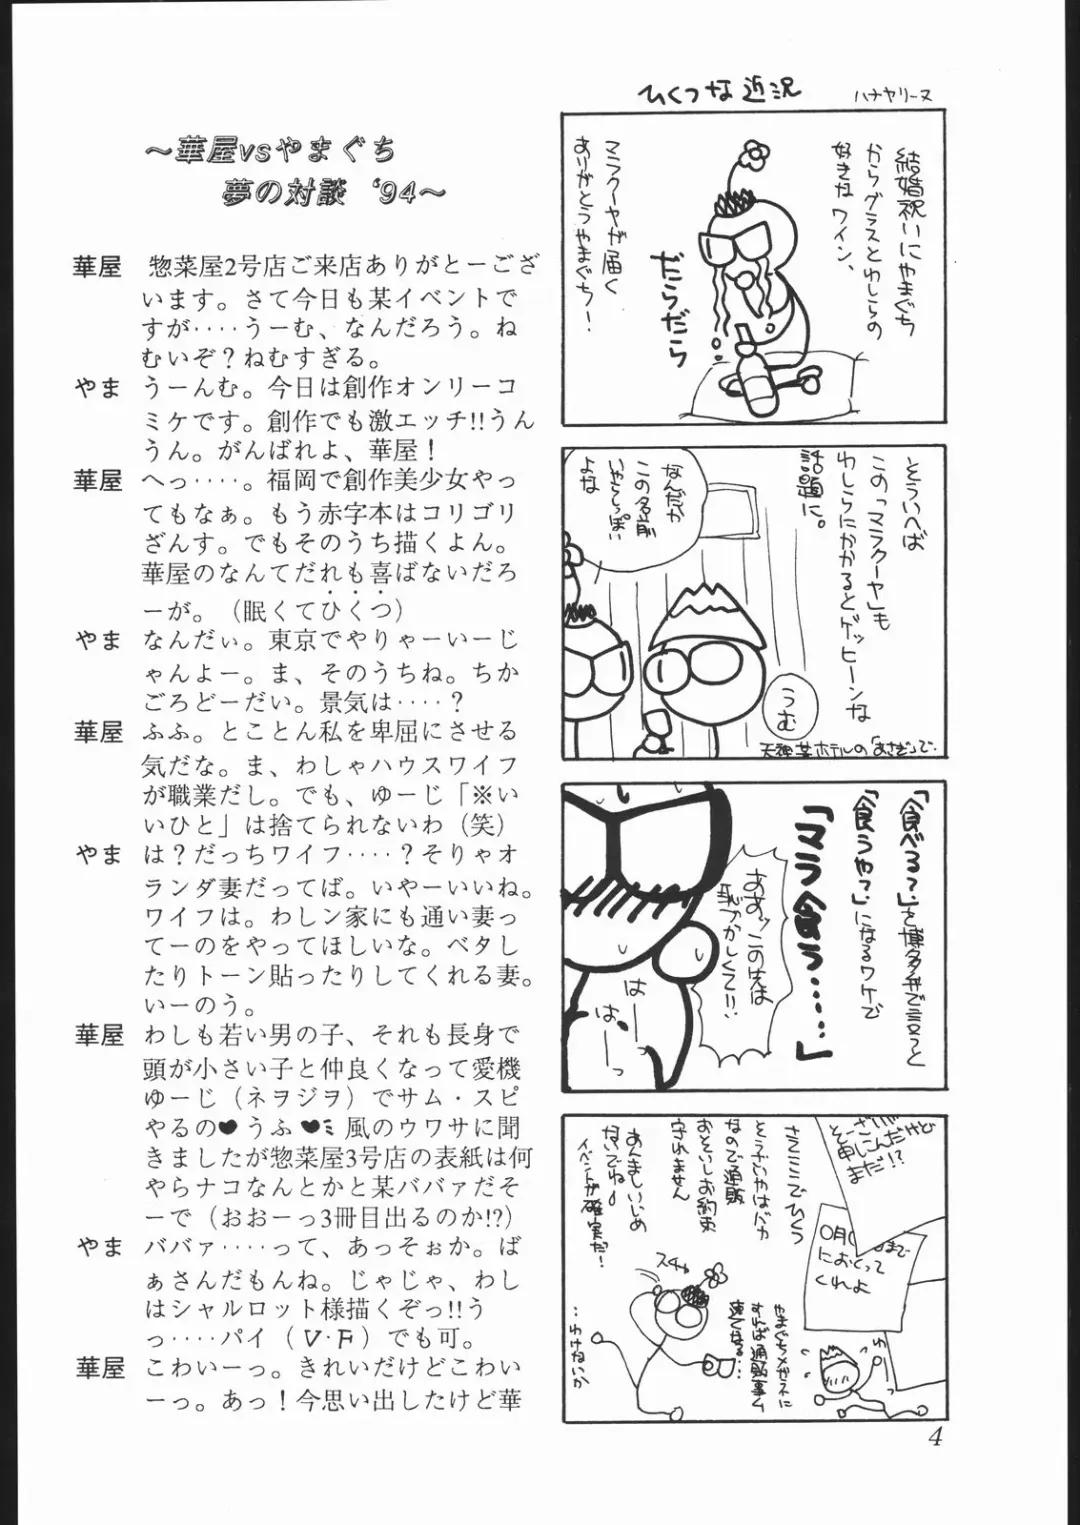 ～華屋vsやまぐち
夢の対談　‘94～
華屋　惣菜屋2号店ご来店ありがとーござ
います。さて今日も某イベントで
すが‥‥うーむ、なんだろう。ね
むいぞ？ねむすぎる。
やま　うーんむ。今日は創作オンリーコ
ミケです。創作でも激エッチ!!うん
うん。がんばれよ、華屋！
華屋　へっ‥‥。福岡で創作美少女やっ
てもなぁ。もう赤字本はコリゴリ
ざんす。でもそのうち描くよん。
華屋のなんてだれも喜ばないだろ
ーが。（眠くてひくつ）
やま　なんだぃ。東京でやりゃーいーじ
ゃんよー。ま、そのうちね。ちか
ごろどーだい。景気は‥‥？
華屋　ふふ。とことん私を卑屈にさせる
気だな。ま、わしゃハウスワイフ
が職業だし。でも、ゆーじ「※い
いひと」は捨てられないわ（笑）
やま　は？だっちワイフ‥‥？そりゃオ
ランダ妻だってば。いやーいいね。
ワイフは。わしン家にも通い妻っ
てーのをやってほしいな。ベタし
たりトーン貼ったりしてくれる妻。
いーのう。
華屋　わしも若い男の子、それも長身で
頭が小さい子と仲良くなって愛機
ゆーじ（ネヲジヲ）でサム・スピ
やるの♥うふ♥ミ風のウワサに聞
きましたが惣菜屋3号店の表紙は何
やらナコなんとかと某ババァだそ
ーで（おおーっ3冊目出るのか!?）
やま　ババァ‥‥って、あっそぉか。ば
ぁさんだもんね。じゃじゃ、わし
はシャルロット様描くぞっ!!う
っ‥‥パイ（V・F）でも可。
華屋　こわいーっ。きれいだけどこわい
ーっ。あっ！今思い出したけど華
ひくつな近況
ハナヤリーヌ
結婚祝いにやまぐち
からグラスとわしらの
好きなワイン、
マラクーヤが届く
ありがとうやまぐち！
だらだら
とういえば
この「マラクーヤ」も
わしらにかかるとゲッヒーンな
話題に。
なんだか
この名前
いやらしっぽい
よな
うむ
天神某ホテルの「あさぎ」で
「食べる?」を博多弁で言うと
「食うや?」になるワケで
「マラ食う……」
ああッこの先は
恥ずかしくて!!
はーー
はーー
さてここでひくつ
とうふいやはバカ
なので通販
おそいしお約束
守れません
あんましいじめ
ないでね
イベントが確実だ！
スチャ
やまぐちメガネに
すれば通販事ム
速くなる…
…わけないか
申しこんだけど
まだ!?
までに
におくって
くれよ
4